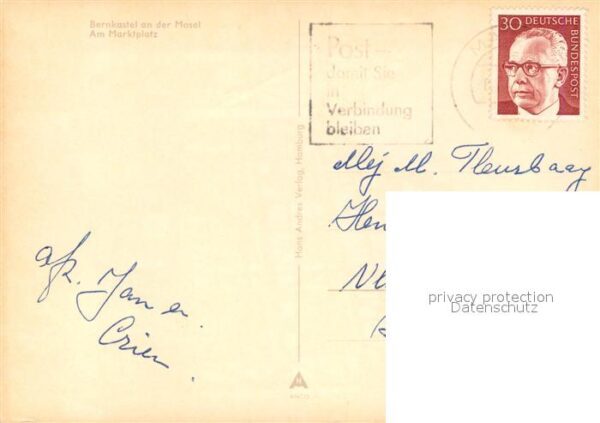 Bernkastel an der Mosel
Am Marktplatz
Post –
damit Sie
in
Verbindung
bleiben
30 DEUTSCHE
BUNDESPOST
Hans Andres Verlag, Hamburg
Mej M.
afz. Jan en
privacy protection
Datenschutz